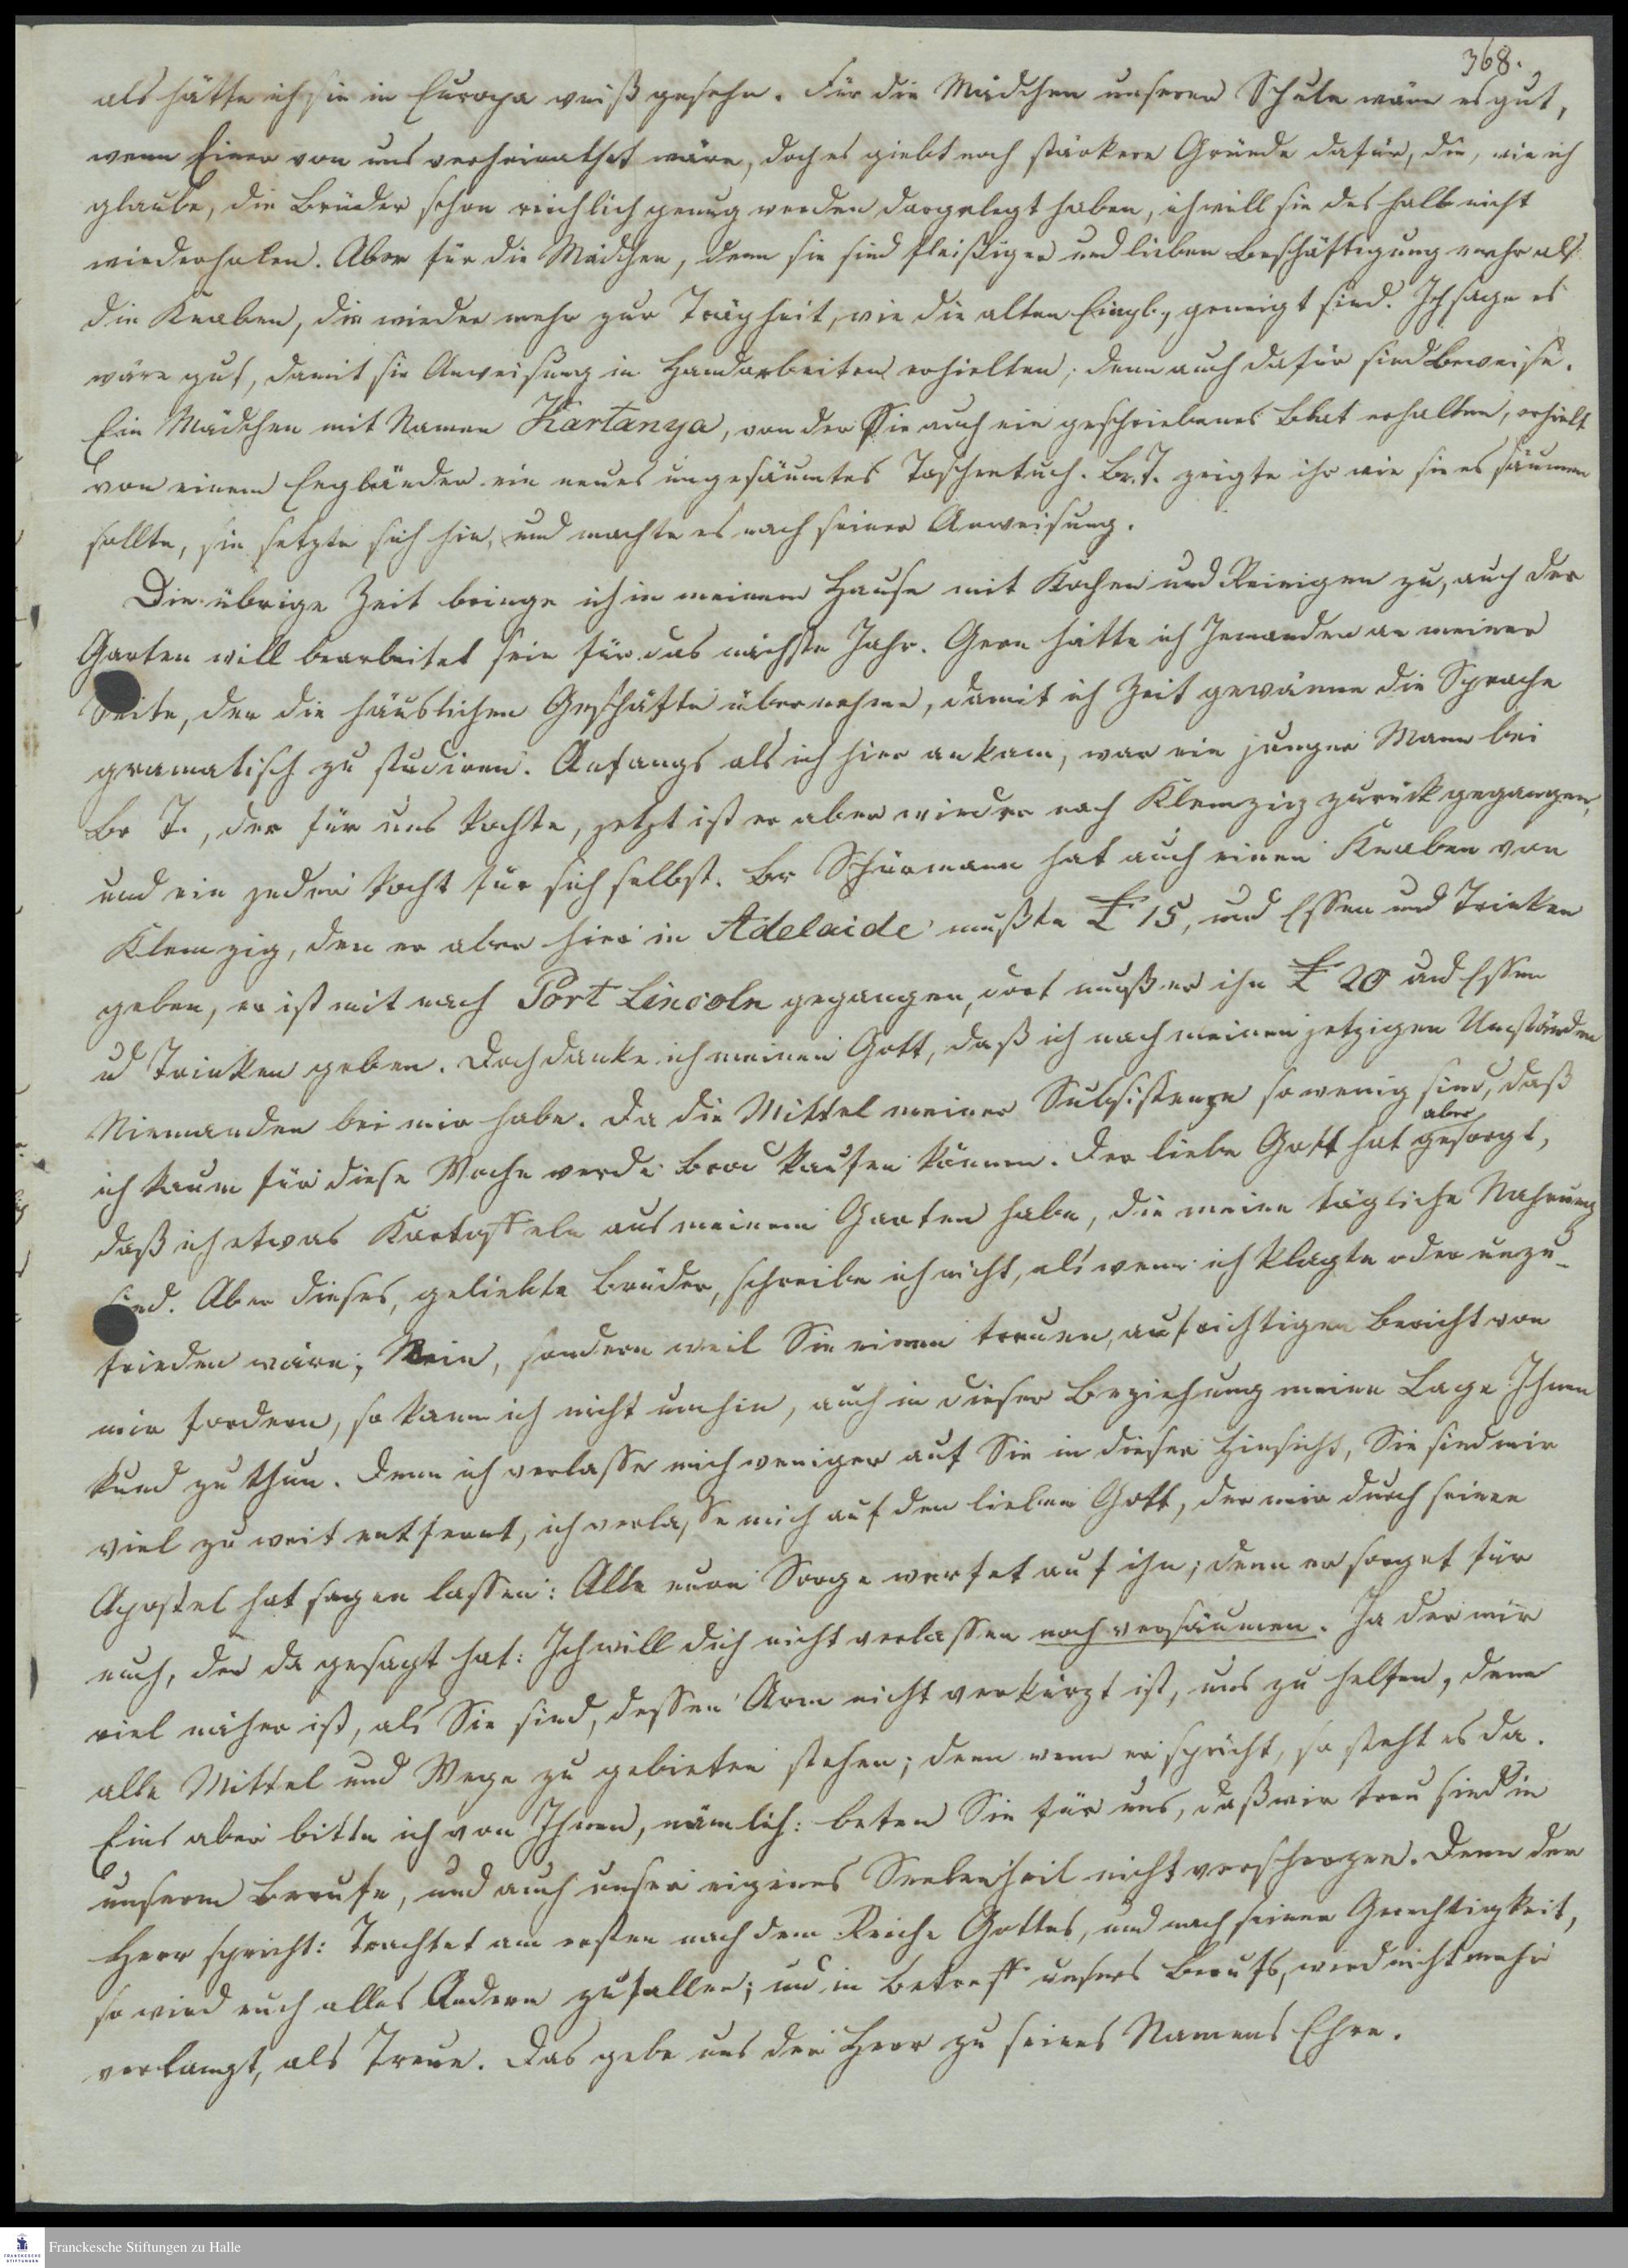 368.
als hätte ich sie in Europa weiß gesehn. Für die Mädchen unserer Schule wäre es gut,
wenn Einer von uns verheirathet wäre, doch es giebt noch stärkere Gründe dafür, die, wie ich
glaube, die Brüder schon reichlich genug werden dargelegt haben, ich will sie deshalb nicht
wiederholen. Aber für die Mädchen, denn sie sind fleißiger und lieben Beschäftigung mehr als
die Knaben, die wieder mehr zur Trägheit, wie die alten Eingb., geneigt sind. Ich sage es
wäre gut, damit sie Anweisung in Handarbeiten erhielten, denn auch dafür sind Beweise.
Ein Mädchen mit Namen Kartanya, von der Sie auch ein geschriebenes Blat erhalten, erhielt
von einem Engländer ein neues ungesäumtes Taschentuch. Br. T. zeigte ihr wie sie es säumen
sollte, sie setzte sich hin, und machte es nach seiner Anweisung.
Die übrige Zeit bringe ich in meinem Hause mit Kochen und Reinigen zu, auch der
Garten will bearbeitet sein für das nächste Jahr. Gern hätte ich Jemanden an meiner
Seite, der die häuslichen Geschäfte übernehme, damit ich Zeit gewänne die Sprache
gramatisch zu studiren. Anfangs als ich hier ankam, war ein junger Mann bei
Br T., der für uns kochte, jetzt ist er aber wieder nach Klemzig zurückgegangen,
und ein jeder kocht für sich selbst. Br Schürmann hat auch einen Knaben von
Klemzig, den er aber hier in Adelaide mußte £ 15, und Essen und Trinken
geben, er ist mit nach Port Lincoln gegangen, dort muß er ihn £ 20 und Essen
ud Trinken geben. Doch danke ich meinen Gott, daß ich nach meinen jetzigen Umständen
Niemanden bei mir habe. Da die Mittel meiner Subsistenze so wenig sind, daß
ich kaum für diese Woche werde Brod kaufen können. Der liebe Gott hat aber gesorgt,
daß ich etwas Kartoffeln aus meinem Garten habe, die meine tägliche Nahrung
sind. Aber dieses, geliebte Brüder, schreibe ich nicht, als wenn ich klagte oder unzu-
frieden wäre; Nein, sondern weil Sie einen treuen, aufrichtigen Bericht von
mir fordern, so kann ich nicht umhin, auch in dieser Beziehung meine Lage Ihnen
kund zu thun. Denn ich verlasse mich weniger auf Sie in dieser Hinsicht, Sie sind mir
viel zu weit entfernt, ich verlasse mich auf den lieben Gott, der mir durch seinen
Apostel hat sagen lassen: Alle eure Sorge werfet auf ihn; denn er sorget für
euch, der da gesagt hat: Ich will dich nicht verlassen noch versäumen. Ja der mir
viel näher ist, als Sie sind, dessen Arm nicht verkürzt ist, uns zu helfen, dem
alle Mittel und Wege zu gebieten stehen; denn wenn er spricht, so steht es da.
Eins aber bitte ich von Ihnen, nämlich: beten Sie für uns, daß wir treu sind in
unserm Berufe, und auch unser eigenes Seelenheil nicht verscherzen. Denn der
Herr spricht: Trachtet am ersten nach dem Reiche Gottes, und nach seiner Gerechtigkeit,
so wird euch alles Andere zufallen; und in Betreff unsers Berufs, wird nicht mehr
verlangt, als Treue. Das gebe uns der Herr zu seines Namens Ehre.
FRANCKESCHE STIFTUNGEN
Franckesche Stiftungen zu Halle